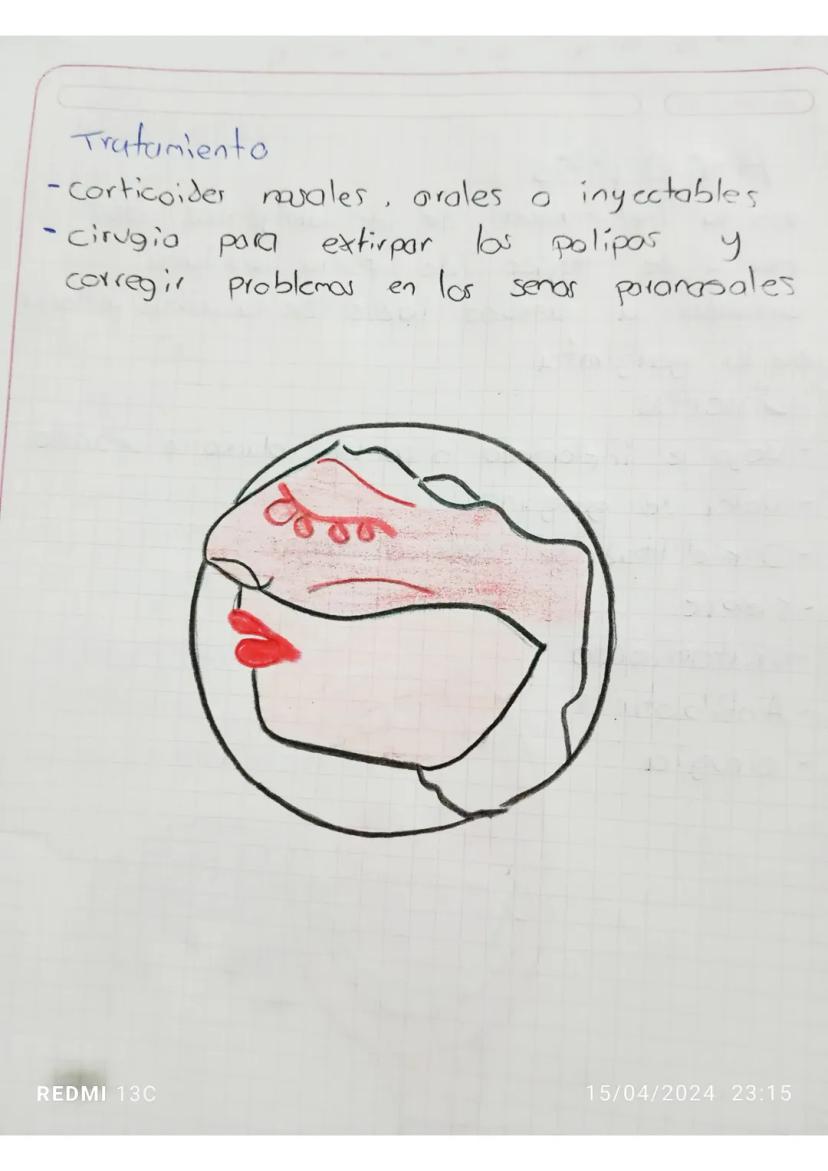 Tratamiento
- corticoides nasales, orales o inyectables
- cirugia para extirpar los polipos y
corregir problemas en los senos paranasales
REDMI 13C
15/04/2024 23:15